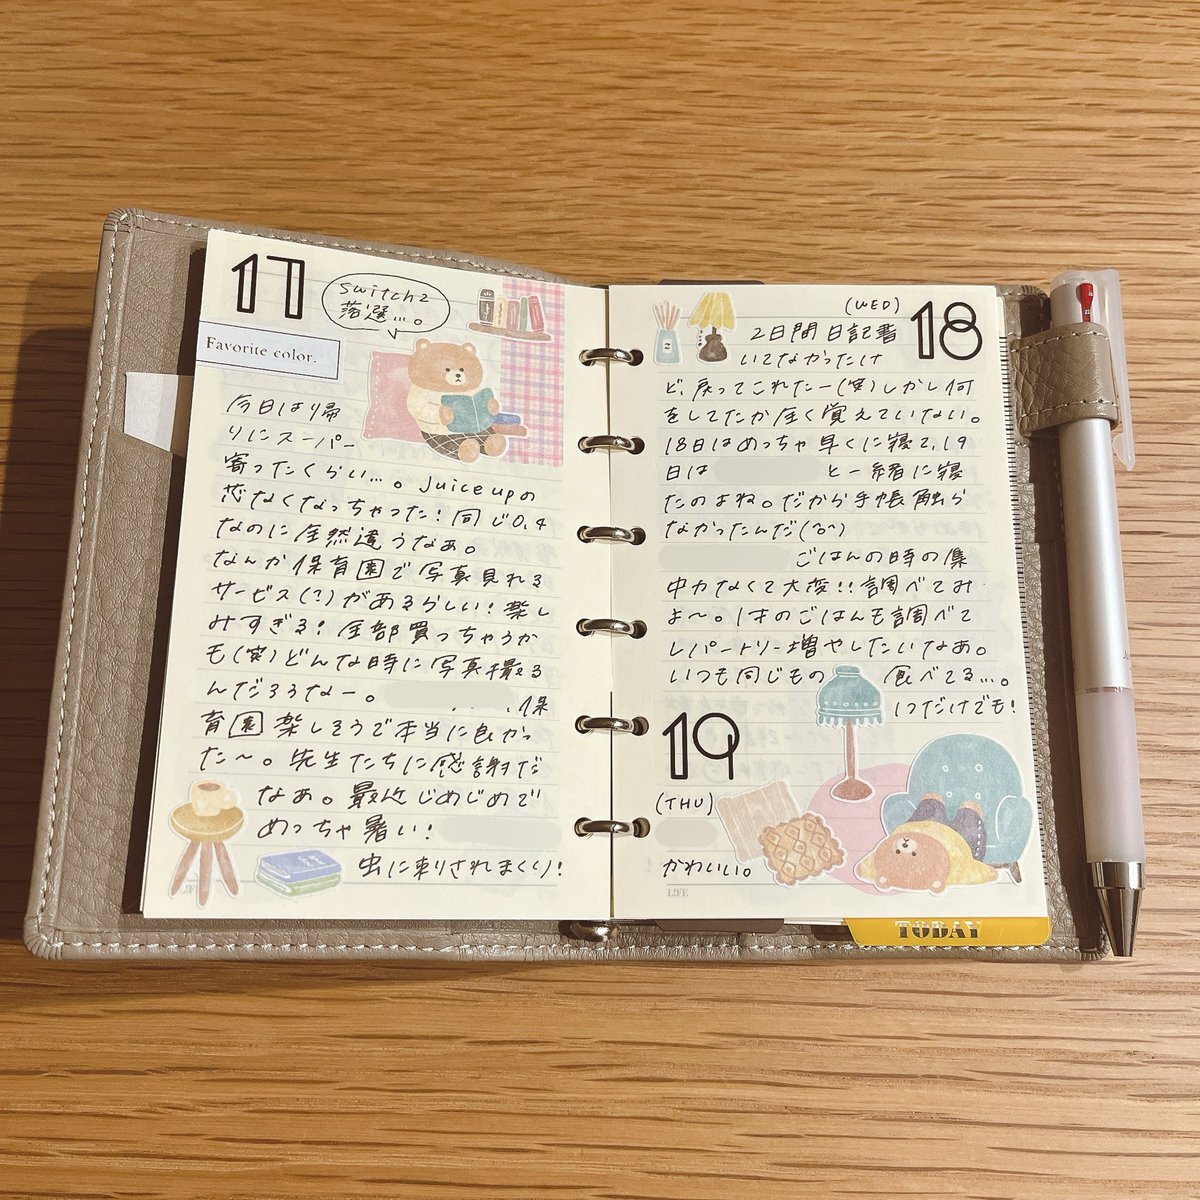 17
Switch2
落選…。
Favorite color.
今日はり帰
りにスーパー
寄ったくらい…。Juice upの
芯なくなっちゃった!同じ0.4
なのに全然違うなあ。
なんか保育園で写真見れる
サービス(?)があるらしい!楽し
みすぎる!全部買っちゃうか
も(笑)どんな時に写真撮る
んだろうなー。
保
育園楽しそうで本当に良かっ
た〜。先生たちに感謝だ
なあ。最近じめじめで
めっちゃ暑い!
虫に刺されまくり!
LIFE
(WED)
18
2日間日記書
いてなかったけ
ど、戻ってこれたー(笑)しかし何
をしてたか全く覚えていない。
18日はめっちゃ早くに寝て、19
日は と一緒に寝
たのよね。だから手帳触ら
なかったんだ(^o^)
ごはんの時の集
中力なくて大変!!調べてみ
よ〜。1才のごはんも調べて
レパートリー増やしたいなあ。
いつも同じもの 食べてる…。
1つだけでも!
19
(THU)
かわいい。
LIFE
TODAY